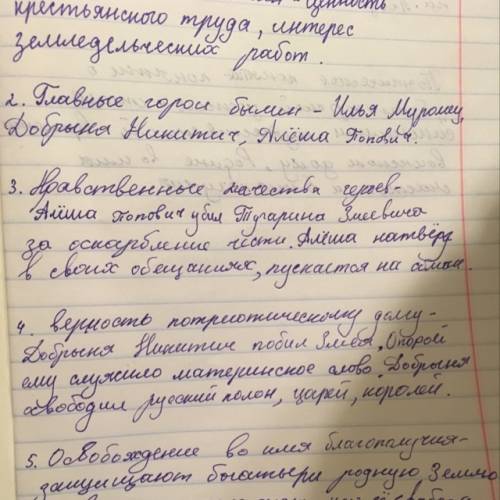 ценность
крестьянского труда, интерес
земледельческих работ.
2. Главные герои былин - Илья Муромец,
Добрыня Никитич, Алёша Попович.
3. Нравственные качества героев-
Алёша Попович убил Тугарина Змеевича
за оскарбление чести. Алёша натвёрд
в своих обещаниях, пускается на обман.
4. верность потриотическому долгу-
Добрыня Никитич побил Змея. Опорой
ему служило материнское слово. Добрыня
освободил русский полон, царей, королей.
5. Освобождение во имя благополучия-
защищают богатыри родную Землю